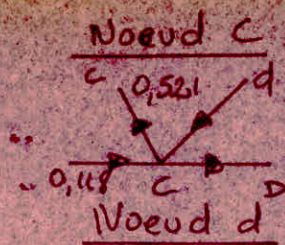 Noeud C
c 0,521 d
0,118 C D
Noeud d